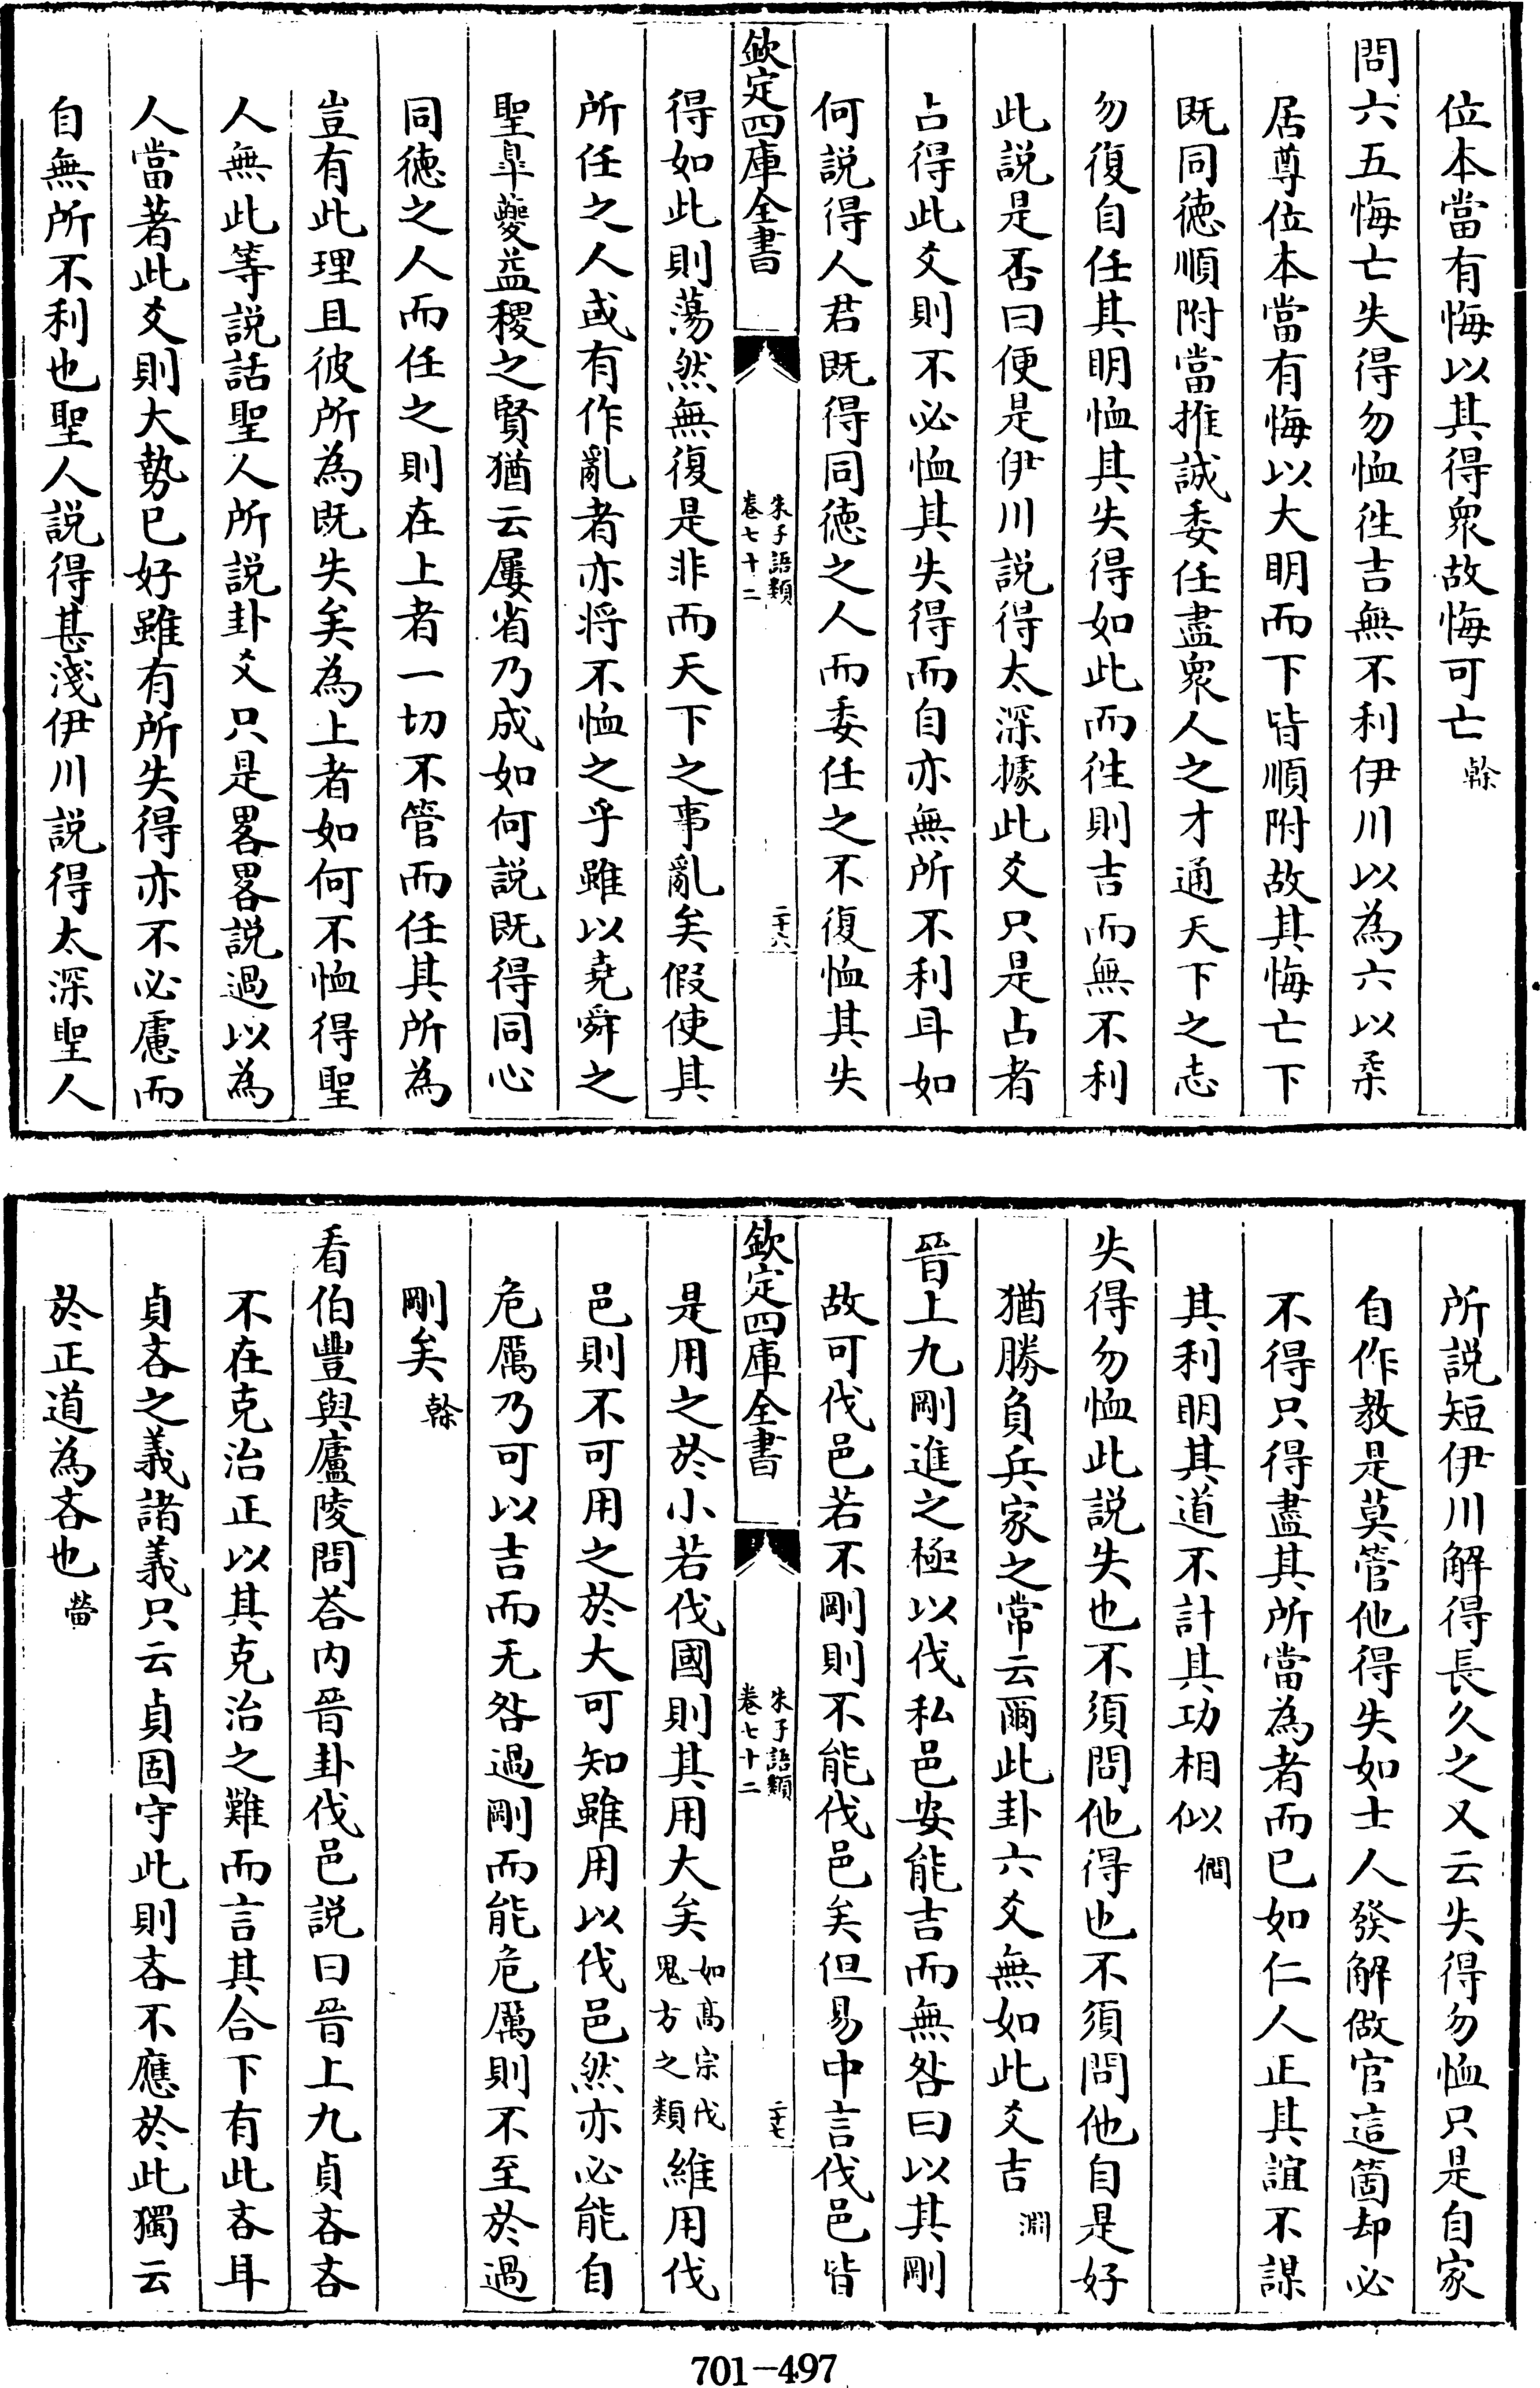 位本當有悔以其得衆故悔可亡榦
問六五悔亡失得勿恤徃吉無不利伊川以為六以柔
居尊位本當有悔以大明而下皆順附故其悔亡下
既同徳順附當推誠委任盡衆人之才通天下之志
勿復自任其明恤其失得如此而徃則吉而無不利
此説是否曰便是伊川説得太深據此爻只是占者
占得此爻則不必恤其失得而自亦無所不利耳如
何説得人君既得同徳之人而委任之不復恤其失
欽定四庫全書
朱子語類
卷七十二
二十六
得如此則蕩然無復是非而天下之事亂矣假使其
所任之人或有作亂者亦将不恤之乎雖以堯舜之
聖臯夔益稷之賢猶云屢省乃成如何説既得同心
同徳之人而任之則在上者一切不管而任其所為
豈有此理且彼所為既失矣為上者如何不恤得聖
人無此等説話聖人所説卦爻只是畧畧説過以為
人當著此爻則大勢已好雖有所失得亦不必慮而
自無所不利也聖人説得甚淺伊川説得太深聖人
所説短伊川解得長久之又云失得勿恤只是自家
自作教是莫管他得失如士人發解做官這箇却必
不得只得盡其所當為者而已如仁人正其誼不謀
其利明其道不計其功相似僩
失得勿恤此説失也不須問他得也不須問他自是好
猶勝負兵家之常云爾此卦六爻無如此爻吉淵
晉上九剛進之極以伐私邑安能吉而無咎曰以其剛
故可伐邑若不剛則不能伐邑矣但易中言伐邑皆
欽定四庫全書
朱子語類
卷七十二
二十七
是用之於小若伐國則其用大矣如髙宗伐鬼方之類維用伐
邑則不可用之於大可知雖用以伐邑然亦必能自
危厲乃可以吉而无咎過剛而能危厲則不至於過
剛矣榦
看伯豐與廬陵問荅内晉卦伐邑説曰晉上九貞吝吝
不在克治正以其克治之難而言其合下有此吝耳
貞吝之義諸義只云貞固守此則吝不應於此獨云
於正道為吝也㽦
701-497